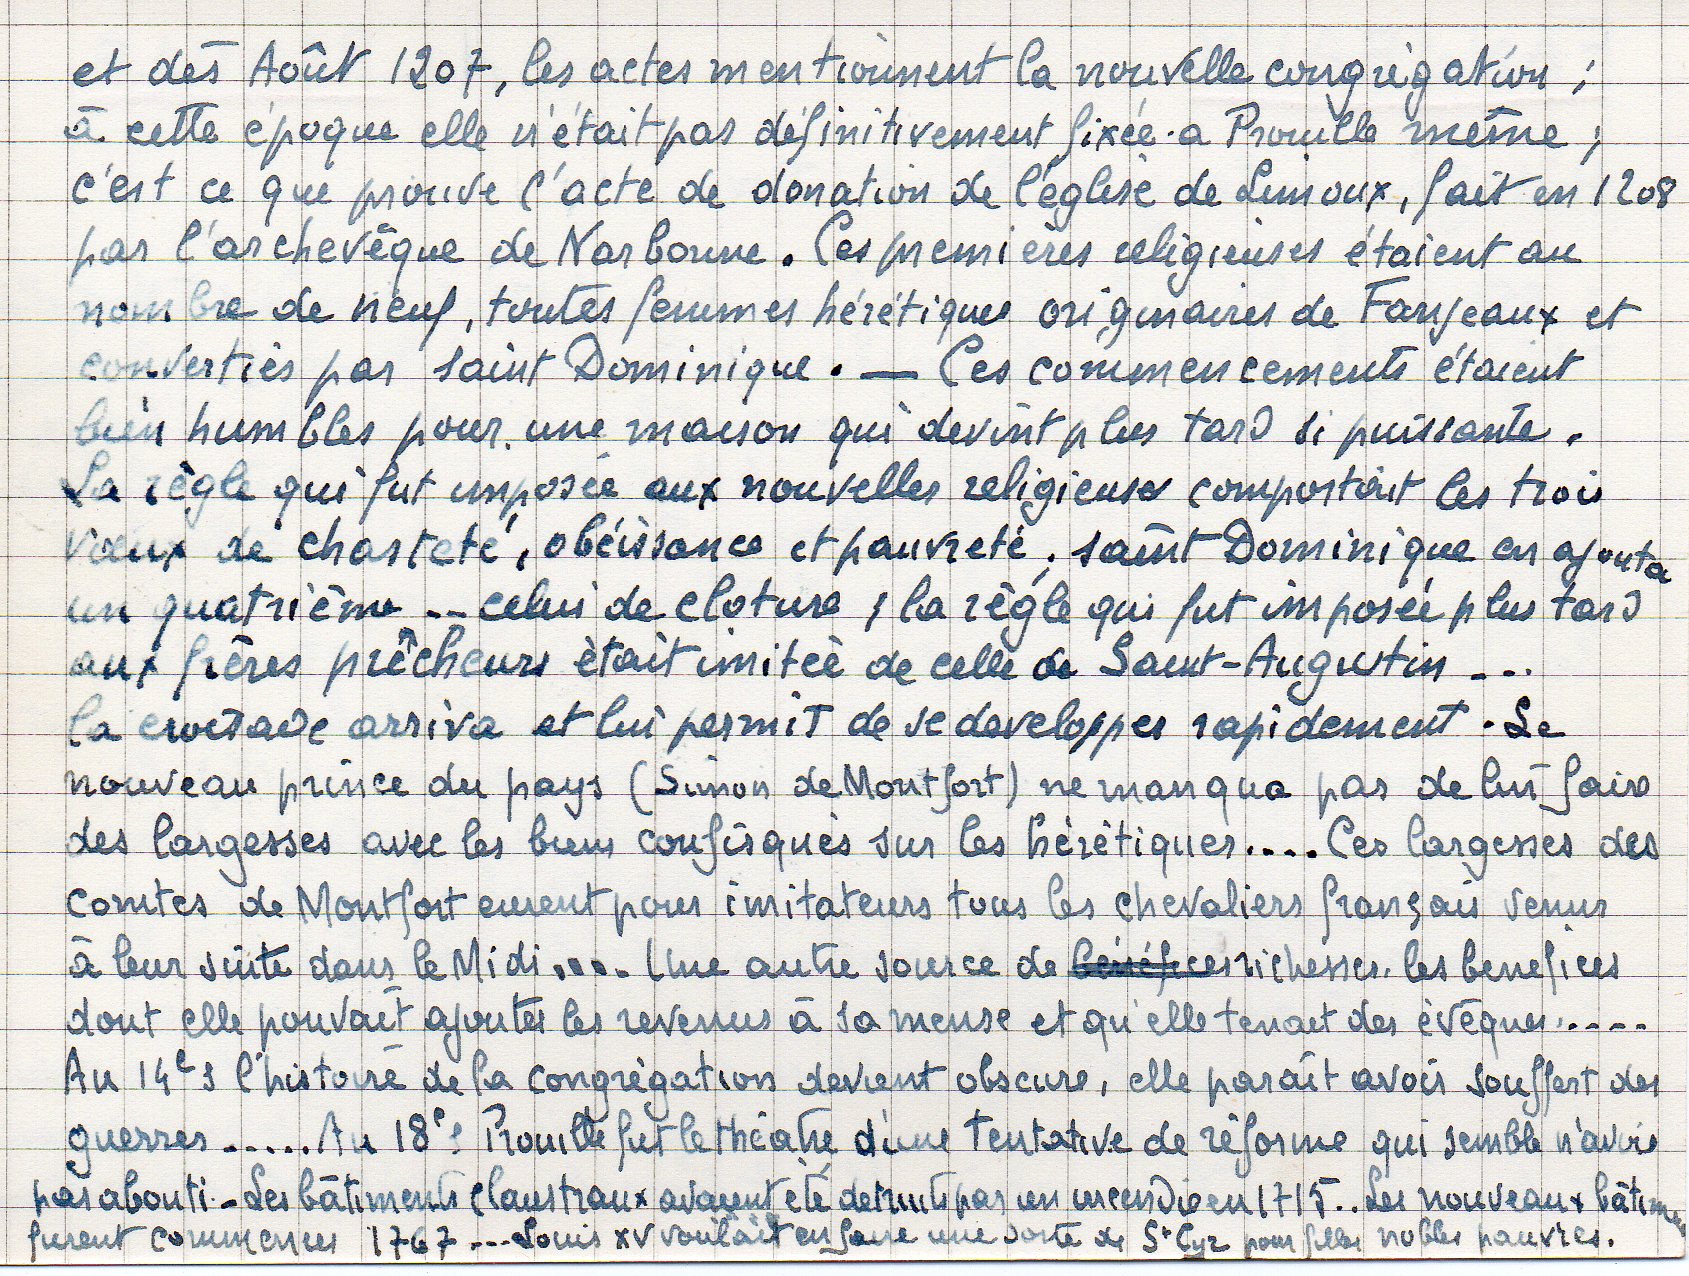 et dès Août 1207, les actes mentionnent la nouvelle congrégation ;
à cette époque elle n'était pas définitivement fixée a Prouille même ;
c'est ce que prouve l'acte de donation de l'église de Limoux, fait en 1208
par l'archevêque de Narbonne. Ces premières religieuses étaient au
nombre de neuf, toutes femmes hérétiques originaires de Fanjeaux et
converties par saint Dominique. — Ces commencements étaient
bien humbles pour une maison qui devint plus tard si puissante.
La règle qui fut imposée aux nouvelles religieuses comportait les trois
vœux de chasteté, obéissance et pauvreté, saint Dominique en ajouta
un quatrième -- celui de cloture ; la règle qui fut imposée plus tard
aux frères prêcheurs était imitée de celle de Saint-Augustin ---
la croisade arriva et lui permit de se developper rapidement. Le
nouveau prince du pays (Simon de Montfort) ne manqua pas de lui faire
des largesses avec les biens confisqués sur les hérétiques.... Ces largesses des
comtes de Montfort eurent pour imitateurs tous les chevaliers français venus
à leur suite dans le Midi.... Une autre source de bénéfices richesses. les benefices
dont elle pouvait ajouter les revenus à sa mense et qu'elle tenait des évêques.----
Au 14e s l'histoire de la congrégation devient obscure, elle paraît avoir souffert des
guerres ...... Au 18e s Prouille fut le théatre d'une Tentative de réforme qui semble n'avoir
pas abouti - Les bâtiments claustraux avaient été detruits par un incendie en 1715.. Les nouveaux bâtiments
furent commences 1767 --- Louis XV voulait en faire une sorte de St Cyr pour filles nobles pauvres.